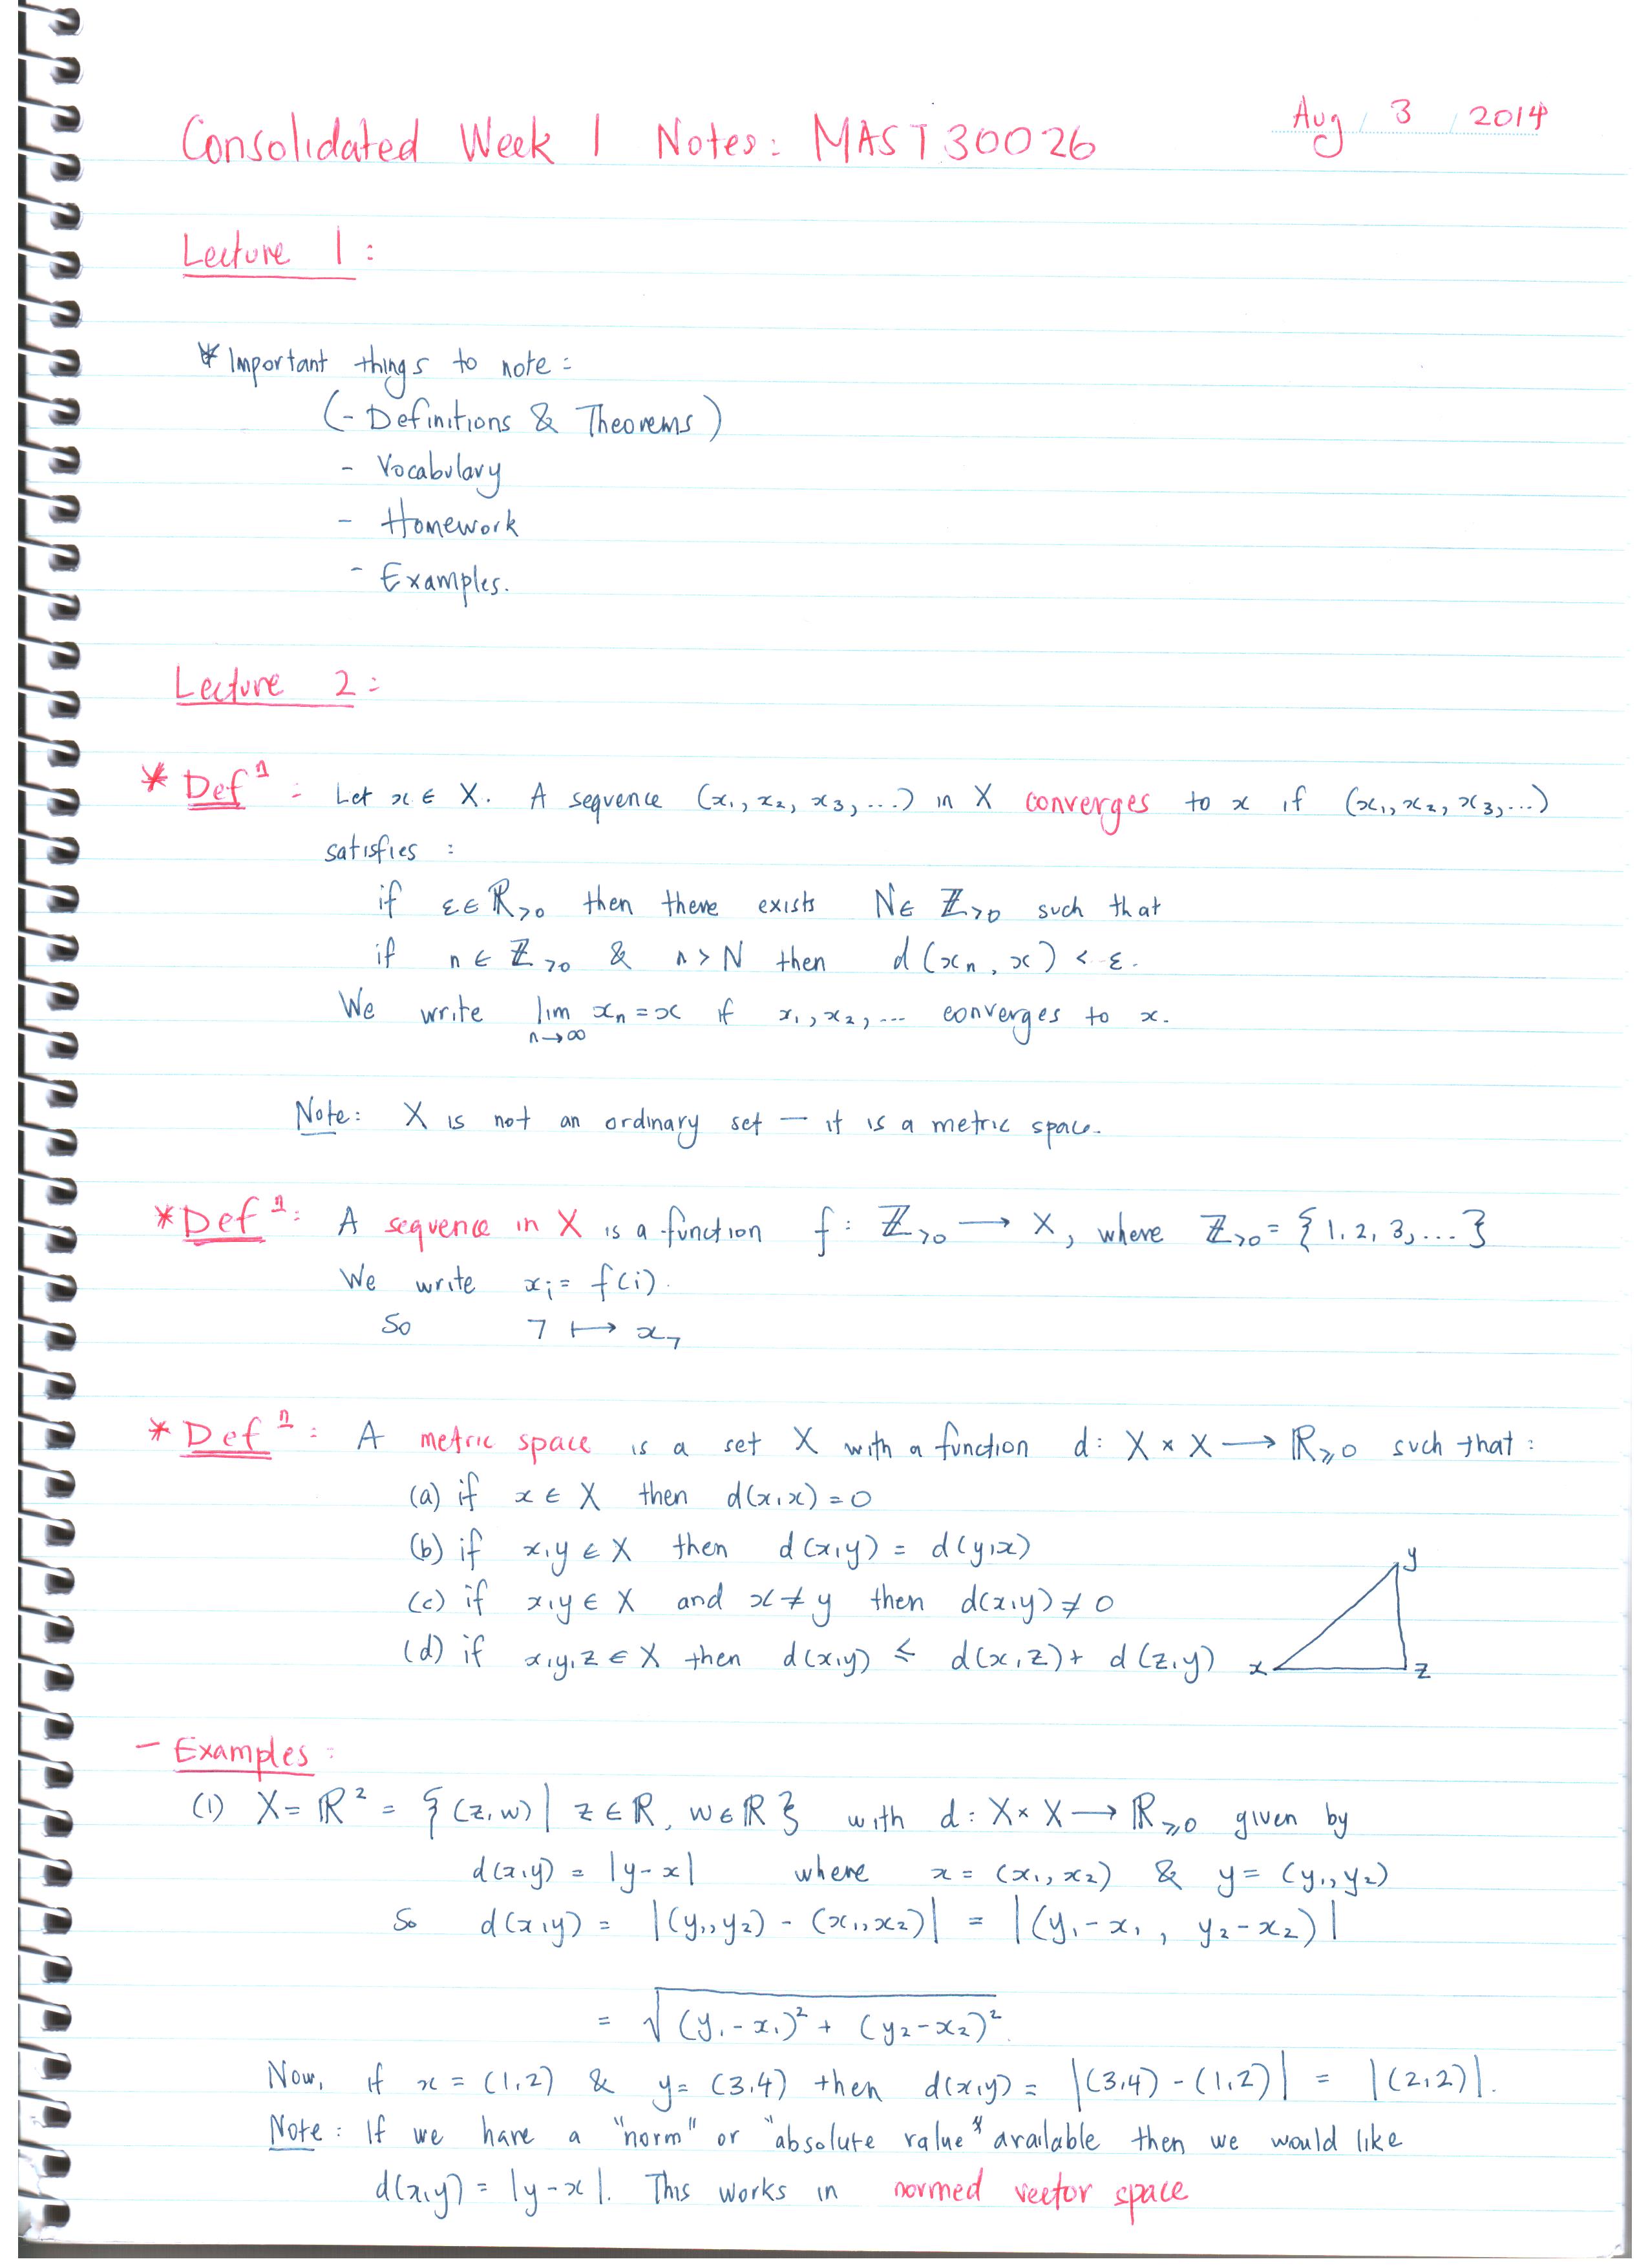 Consolidated Week 1 Notes: MAST30026
Aug 3, 2014
Lecture 1:
* Important things to note:
(- Definitions & Theorems)
- Vocabulary
- Homework
- Examples.
Lecture 2:
* Defⁿ: Let x ∈ X. A sequence (x₁, x₂, x₃, ...) in X converges to x if (x₁, x₂, x₃, ...)
satisfies:
if ε ∈ ℝ>0 then there exists N ∈ ℤ>0 such that
if n ∈ ℤ>0 & n > N then d(xₙ, x) < ε.
We write lim n→∞ xₙ = x if x₁, x₂, ... converges to x.
Note: X is not an ordinary set — it is a metric space.
* Defⁿ: A sequence in X is a function f: ℤ>0 → X, where ℤ>0 = {1, 2, 3, ...}
We write xᵢ = f(i).
So 7 ↦ x₇
* Defⁿ: A metric space is a set X with a function d: X × X → ℝ≥0 such that:
(a) if x ∈ X then d(x,x) = 0
(b) if x,y ∈ X then d(x,y) = d(y,x)
(c) if x,y ∈ X and x ≠ y then d(x,y) ≠ 0
(d) if x,y,z ∈ X then d(x,y) ≤ d(x,z) + d(z,y)
y
x
z
- Examples:
(1) X = ℝ² = {(z,w) | z ∈ ℝ, w ∈ ℝ} with d: X × X → ℝ≥0 given by
d(x,y) = |y-x| where x = (x₁, x₂) & y = (y₁, y₂)
So d(x,y) = |(y₁,y₂) - (x₁,x₂)| = |(y₁-x₁, y₂-x₂)|
= √((y₁-x₁)² + (y₂-x₂)²).
Now, if x = (1,2) & y = (3,4) then d(x,y) = |(3,4) - (1,2)| = |(2,2)|.
Note: If we have a "norm" or "absolute value" available then we would like
d(x,y) = |y-x|. This works in normed vector space